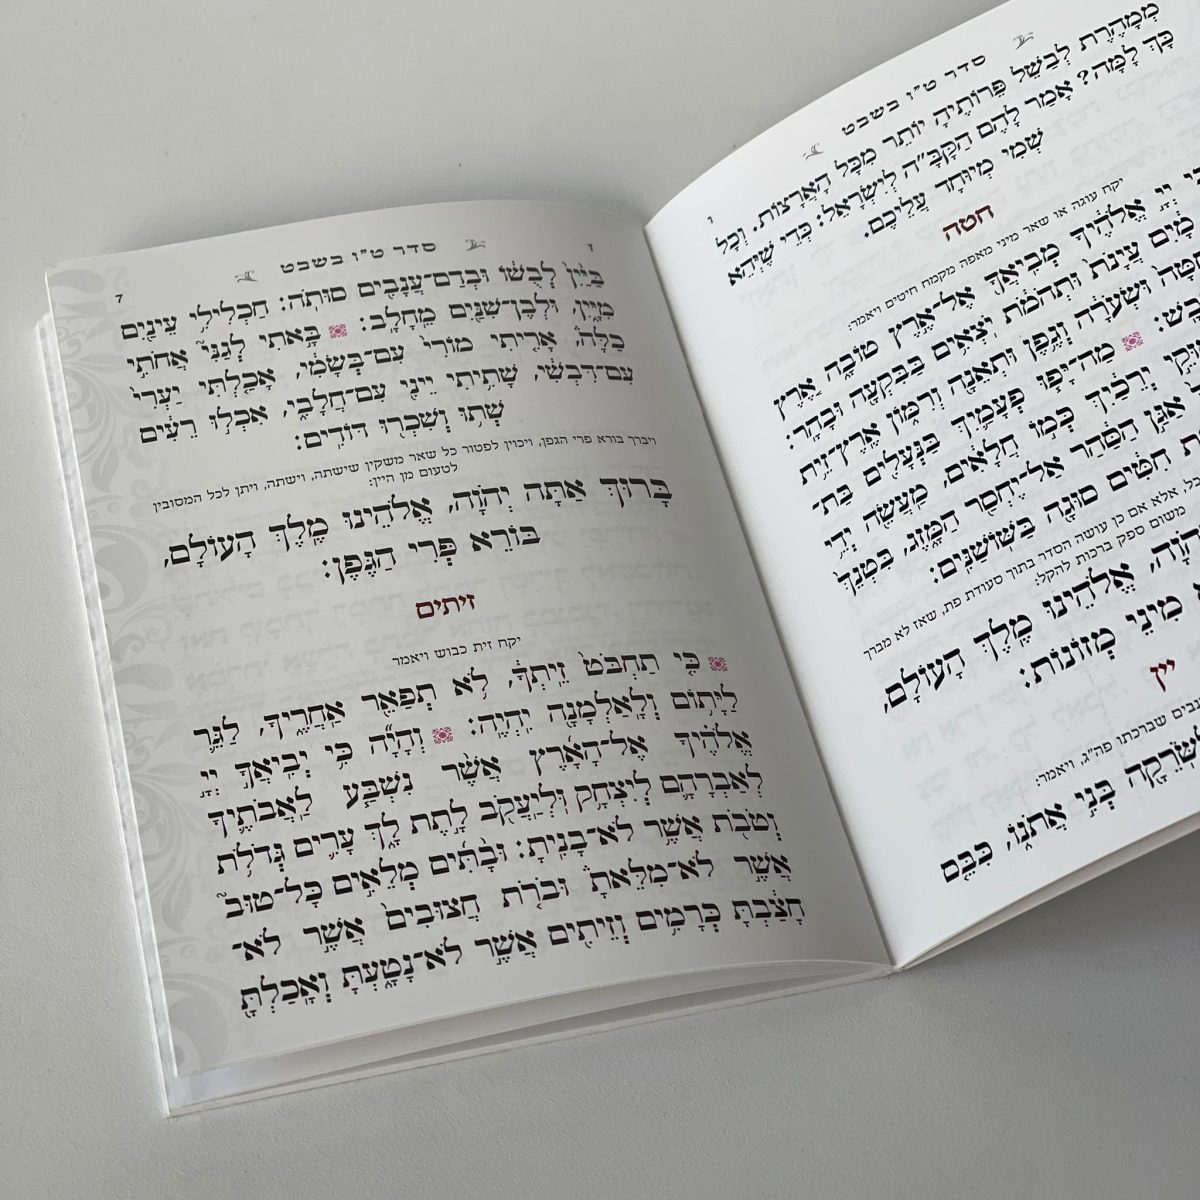 סדר ט"ו בשבט
ו
מְמַהֶרֶת לְבַשֵּׁל פֵּרוֹתֶיהָ יוֹתֵר מִכָּל הָאֲרָצוֹת. וְכָל
כָּךְ לָמָּה? אָמַר לָהֶם הַקָּבָּ"ה לְיִשְׂרָאֵל: כְּדֵי שֶׁיְּהֵא
שְׁמִי מְיוּחָד עֲלֵיכֶם.
חטה
יקח עוגה או שאר מיני מאפה מקמח חיטים ויאמר:
יְיָ אֱלֹהֶיךָ מְבִיאֲךָ אֶל־אֶרֶץ טוֹבָה, אֶרֶץ
מָיִם עֲיָנֹת וּתְהֹמֹת יֹצְאִים בַּבִּקְעָה וּבָהָר:
חִטָּה וּשְׂעֹרָה וְגֶפֶן וּתְאֵנָה וְרִמּוֹן אֶרֶץ־זֵית
מַה־יָּפוּ פְעָמַיִךְ בַּנְּעָלִים בַּת־
יְרֵכַיִךְ כְּמוֹ חֲלָאִים, מַעֲשֵׂה יְדֵי
אַגַּן הַסַּהַר אַל־יֶחְסַר הַמָּזֶג, בִּטְנֵךְ
חִטִּים סוּגָה בַּשּׁוֹשַׁנִּים:
אלא אם כן עושה הסדר בתוך סעודת פת, שאז לא מברך
משום ספק ברכות להקל:
אֱלֹהֵינוּ מֶלֶךְ הָעוֹלָם,
מִינֵי מְזוֹנוֹת:
יין
שברכתו פה"ג, ויאמר:
בְּנִי אֲתֹנוֹ, כִּבֵּס
ז
סדר ט"ו בשבט
7
בַּיַּיִן לְבֻשׁוֹ וּבְדַם־עֲנָבִים סוּתֹה: חַכְלִילִי עֵינַיִם
מִיָּיִן, וּלְבֶן־שִׁנַּיִם מֵחָלָב: בָּאתִי לְגַנִּי אֲחֹתִי
כַלָּה, אָרִיתִי מוֹרִי עִם־בְּשָׂמִי, אָכַלְתִּי יַעְרִי
עִם־דִּבְשִׁי, שָׁתִיתִי יֵינִי עִם־חֲלָבִי, אִכְלוּ רֵעִים
שְׁתוּ וְשִׁכְרוּ דּוֹדִים:
ויברך בורא פרי הגפן, ויכוין לפטור כל שאר משקין שישתה, וישתה, ויתן לכל המסובין
לטעום מן היין:
בָּרוּךְ אַתָּה יְהֹוָה, אֱלֹהֵינוּ מֶלֶךְ הָעוֹלָם,
בּוֹרֵא פְּרִי הַגֶּפֶן:
זיתים
יקח זית כבוש ויאמר
כִּי תַחְבֹּט זֵיתְךָ, לֹא תְפַאֵר אַחֲרֶיךָ, לַגֵּר
לַיָּתוֹם וְלָאַלְמָנָה יִהְיֶה: וְהָיָה כִּי יְבִיאֲךָ יְיָ
אֱלֹהֶיךָ אֶל־הָאָרֶץ אֲשֶׁר נִשְׁבַּע לַאֲבֹתֶיךָ
לְאַבְרָהָם לְיִצְחָק וּלְיַעֲקֹב לָתֶת לָךְ עָרִים גְּדֹלֹת
וְטֹבֹת אֲשֶׁר לֹא־בָנִיתָ: וּבָתִּים מְלֵאִים כָּל־טוּב
אֲשֶׁר לֹא־מִלֵּאתָ וּבֹרֹת חֲצוּבִים אֲשֶׁר לֹא־
חָצַבְתָּ כְּרָמִים וְזֵיתִים אֲשֶׁר לֹא־נָטָעְתָּ וְאָכַלְתָּ